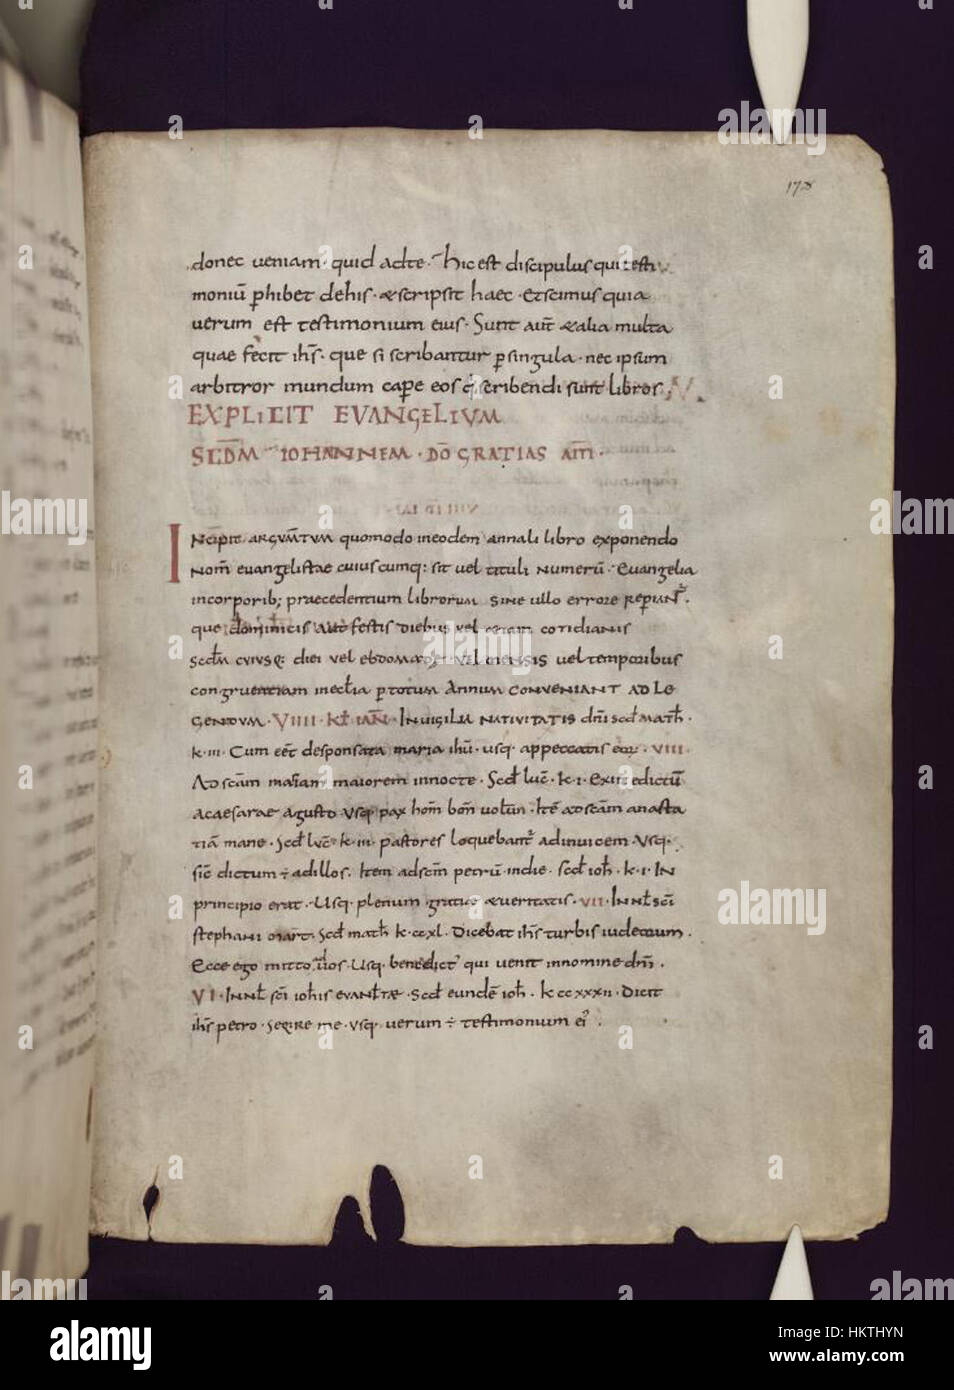 178
donec ueniam· quid adte· hic est discipulus qui testi
moniū ꝑhibet dehis· &scripsit haec· Et scimus quia
uerum est testimonium eius· Sunt aut̄ &alia multa
quae fecit ih̄s· que si scribantur ꝑsingula· nec ipsum
arbitror mundum caꝑe eos q̄ scribendi sunt libros
EXPLICIT EVANGELIVM
SECD̄M IOHANNEM· DŌ GRATIAS AM̄·
INCIPIT ARGVM̄TVM quomodo ineodem annali libro exponendo
NOM̄ euangelistae cuiuscumq: sit uel tituli NUMERŪ· Euangelia
incorporib; praecedentium librorum SINE ullo errore
que dominicis aut festis DIEBUS vel etiam COTIDIANIS
SECD̄M CVIVSQ: diei vel uel temporibus
congruentiam inecl̄ia ꝑtotum ANNUM CONVENIANT AD LE
GENDVM· VIIII· KL̄ IAN̄· IN VIGILIA NATIVITATIS dn̄i scd̄ MATH̄·
k· III· Cum eēt desponsata maria· usq· appeccatis eoꝝ· VIII·
AD sc̄am mariam maiorem innocte· Scd̄ luc̄· k· I· Exiit edictū
Acaesarae Agusto· Vsq pax hom̄ bon̄ uolun̄· Itē ADsc̄am anasta
tiā mane· Scd̄ lvc̄· k· III· pastores loquebant̄ adinuicem· Vsq·
sic̄ dictum ÷ adillos. Item adsc̄m petrū· indie· scd̄ ioh̄· k· I· IN
principio erat· Usq· plenum gratię &ueritatis· VII· IN NL̄ sc̄i
stephani MART̄· Scd̄ math̄ k· ccxl· Dicebat ih̄s turbis iudeorum·
Ecce ego mitto· Usq· benedict' qui uenit innomine dn̄i·
VI· IN NL̄ sc̄i ioh̄is EVANL̄TAE· Scd̄ eundē ioh̄· k ccxxxii· Dicit
ih̄s petro· seq̄re me· vsq· uerum ÷ testimonium ei'·
alamy
Image ID: HKTHYN
www.alamy.com